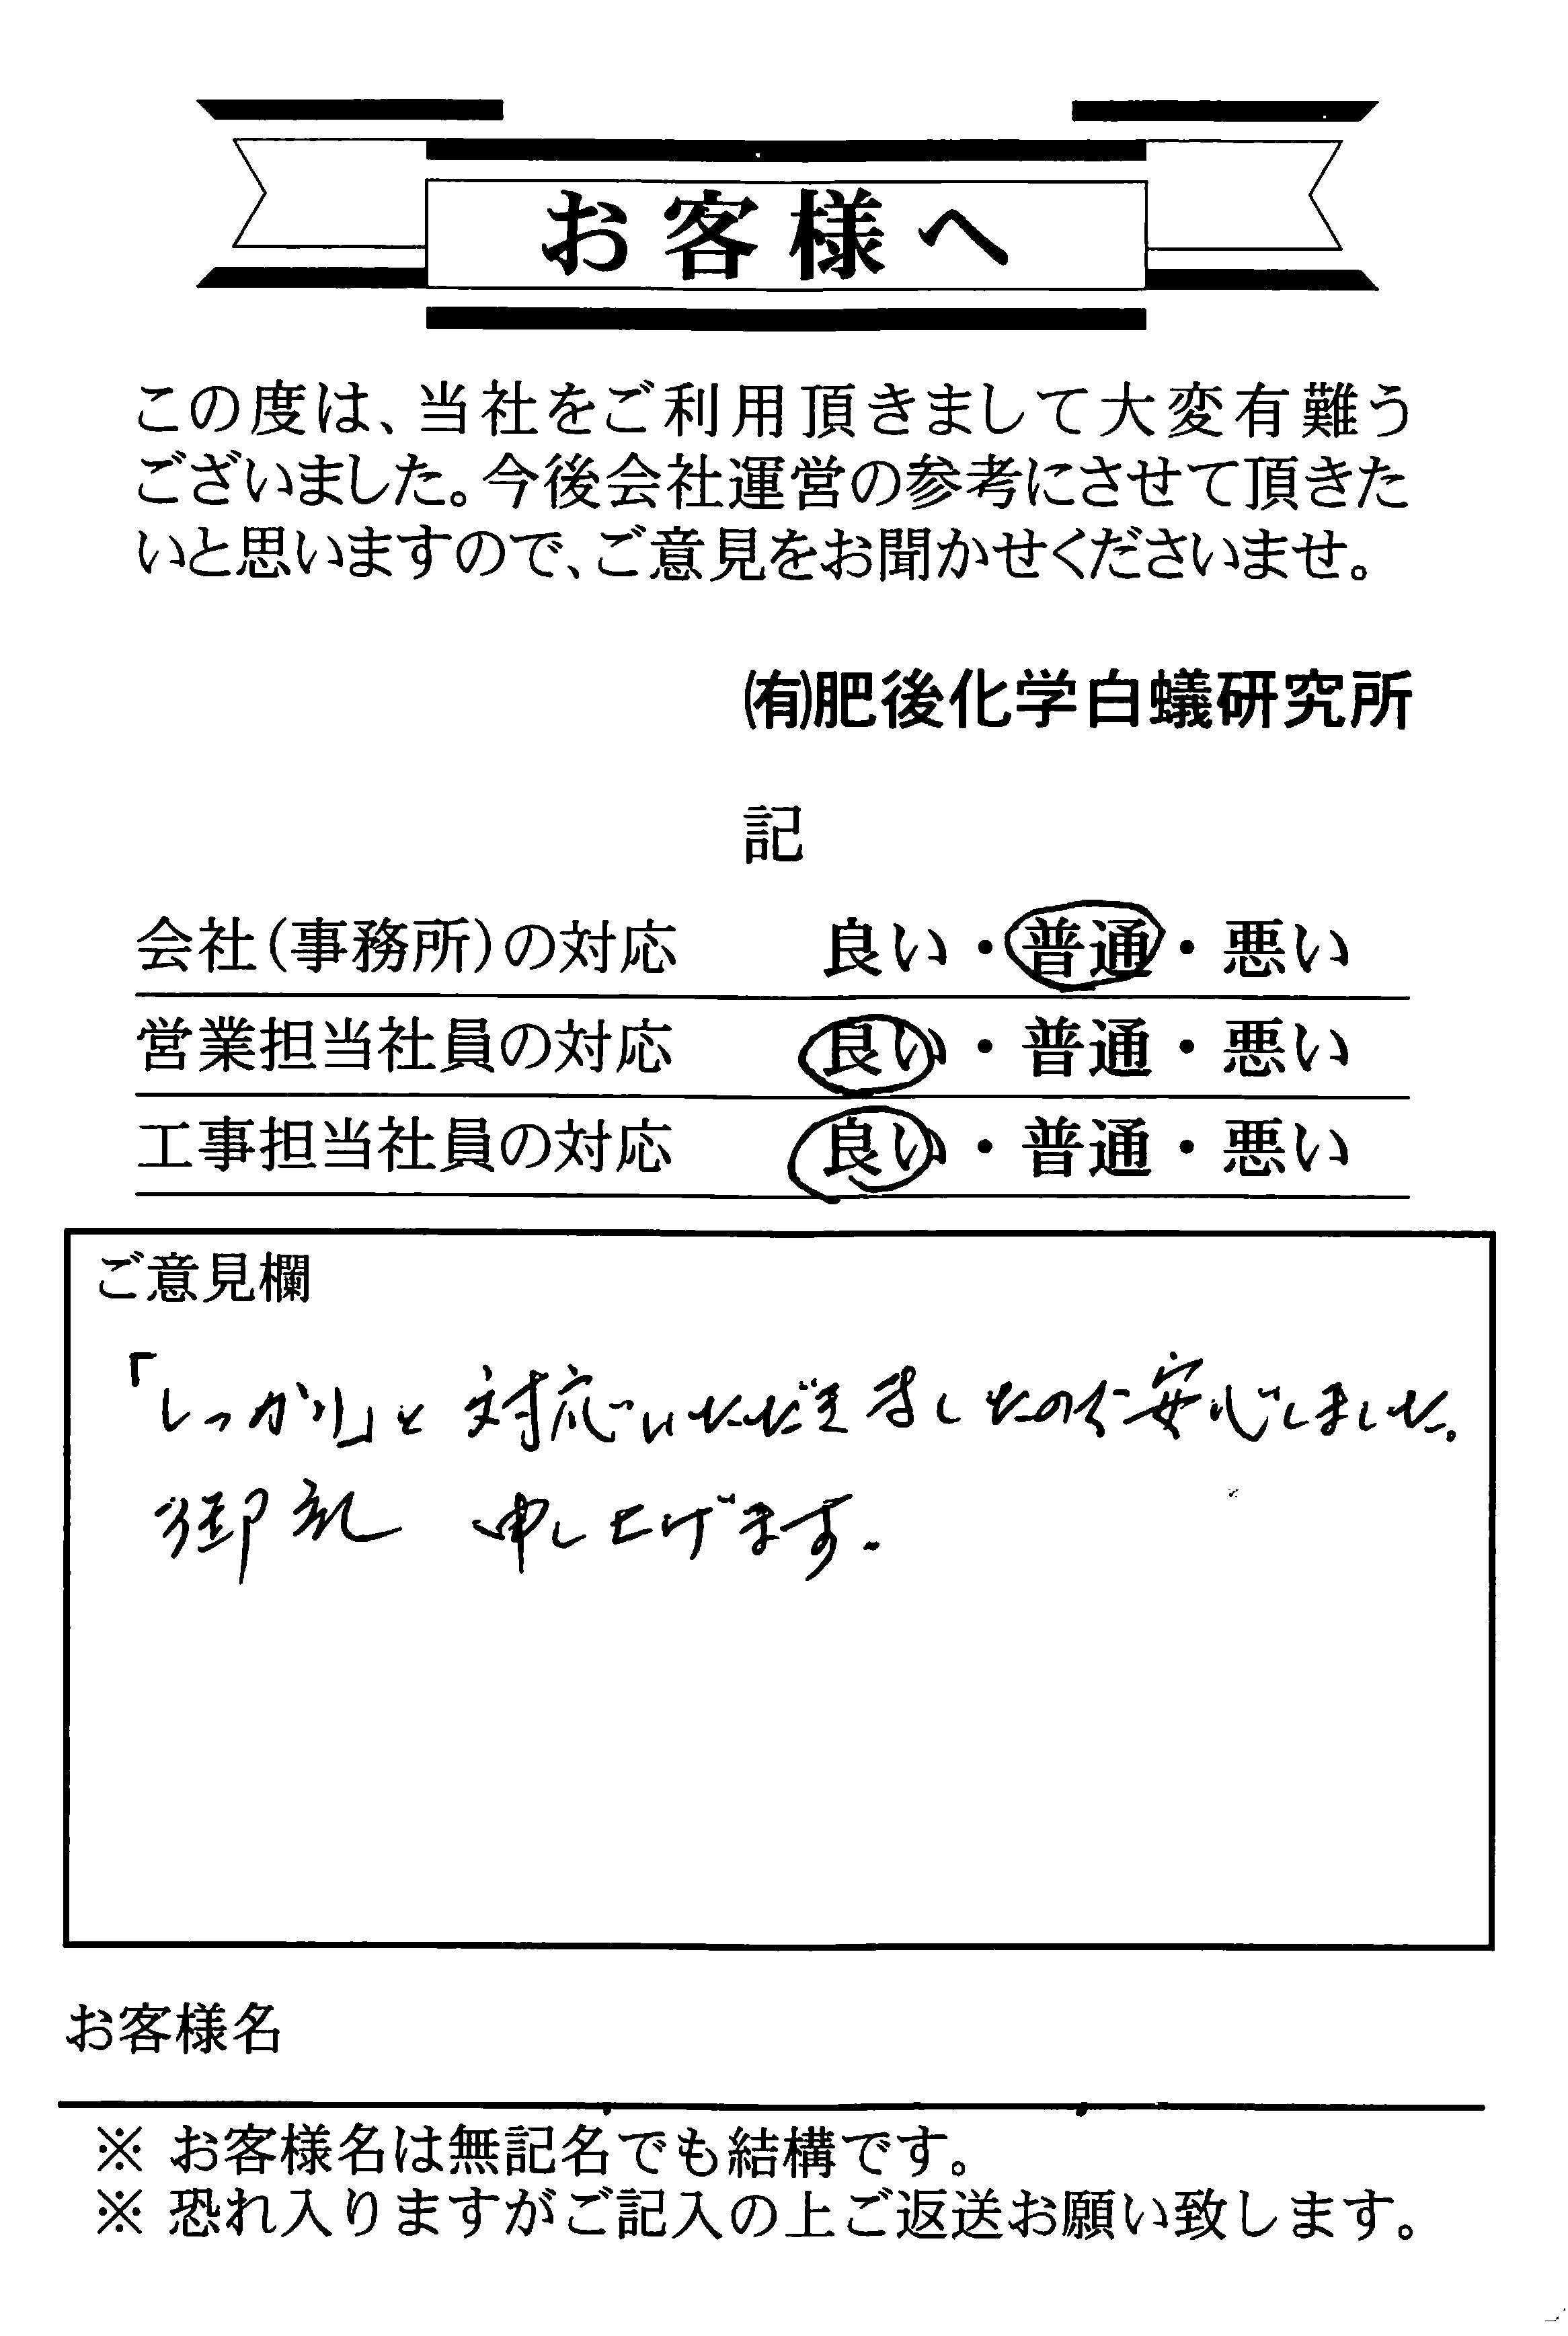 お客様へ
この度は、当社をご利用頂きまして大変有難う
ございました。今後会社運営の参考にさせて頂きた
いと思いますので、ご意見をお聞かせくださいませ。
㈲肥後化学白蟻研究所
記
会社(事務所)の対応 良い・普通・悪い
営業担当社員の対応 良い・普通・悪い
工事担当社員の対応 良い・普通・悪い
ご意見欄
「しっかり」と対応いただきましたので安心しました。
御礼 申し上げます。
お客様名
※ お客様名は無記名でも結構です。
※ 恐れ入りますがご記入の上ご返送お願い致します。